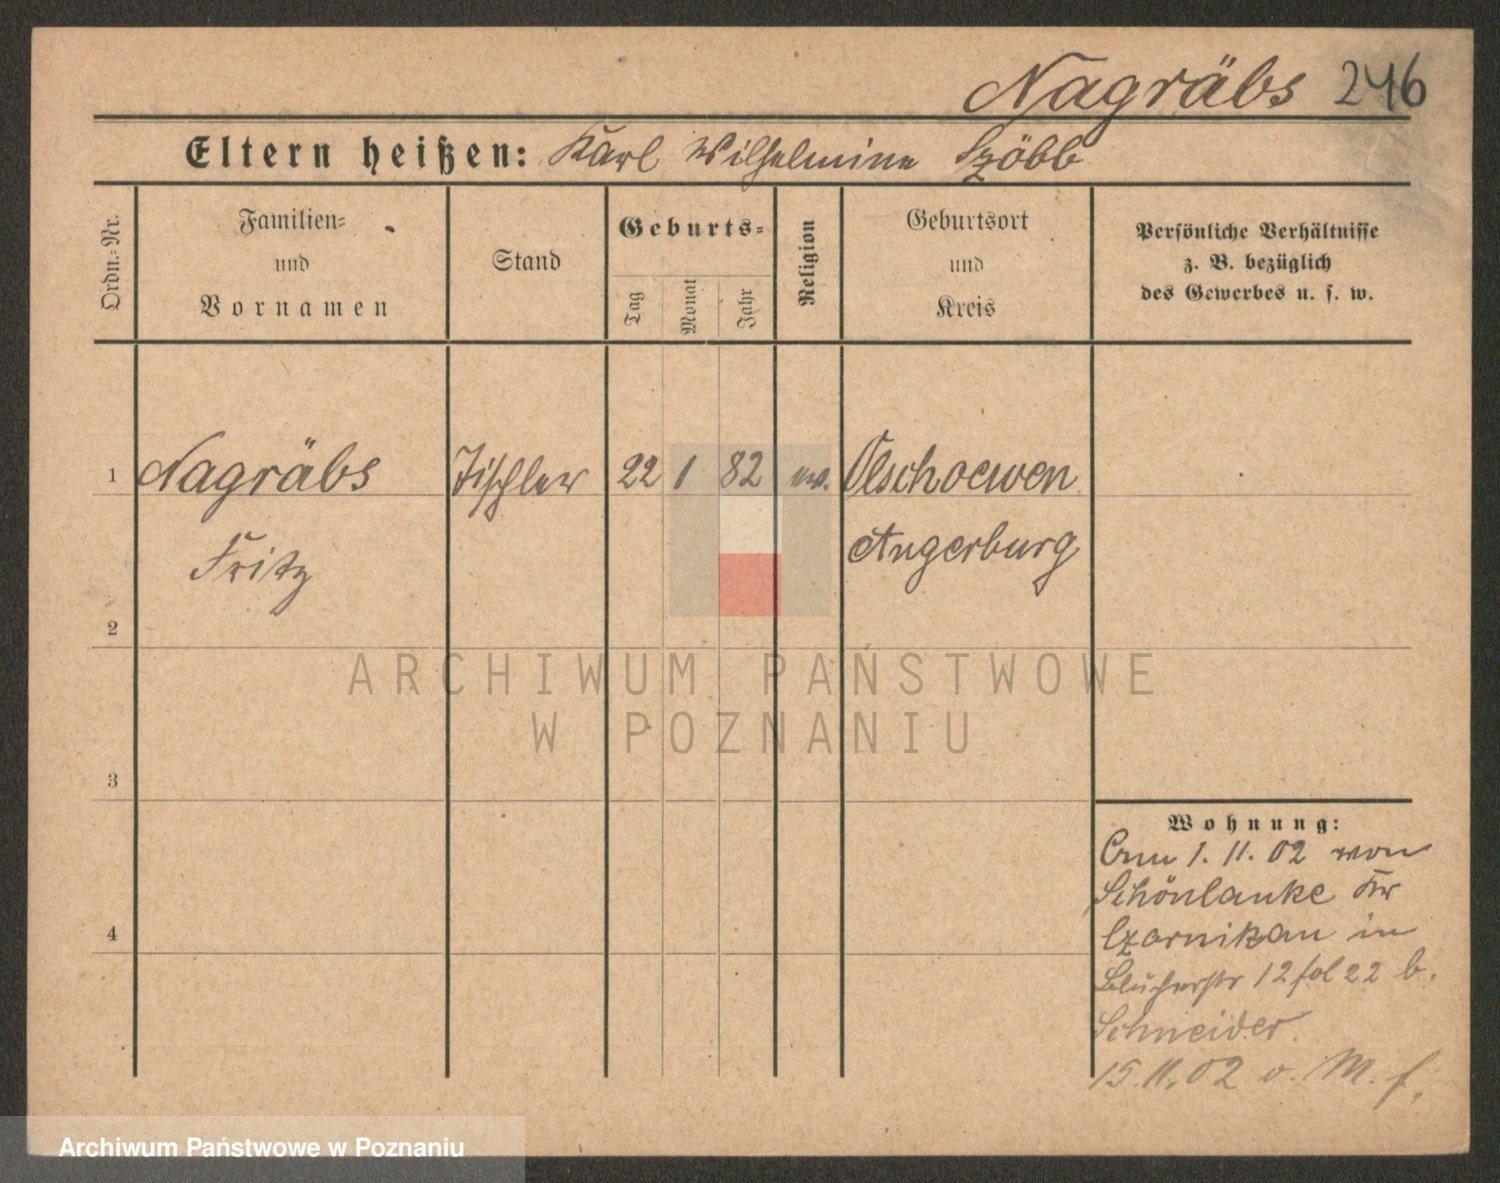 Nagräbs 246
Eltern heißen: Karl Wilhelmine Szöbb
Ordn.-Nr.
Familien-
und
Vornamen
Stand
Geburts-
Tag
Monat
Jahr
Religion
Geburtsort
und
Kreis
Persönliche Verhältnisse
z. B. bezüglich
des Gewerbes u. s. w.
1 Nagräbs Tischler 22 1 82 ev. Olschoewen
Fritz Angerburg
2
3
4
ARCHIWUM PAŃSTWOWE
W POZNANIU
Wohnung:
1. 11. 02 von
Schönlanke Kr
Czarnikau in
Blücherstr 12 fol 22 b.
Schneider.
15.11.02 v. M. f.
Archiwum Państwowe w Poznaniu